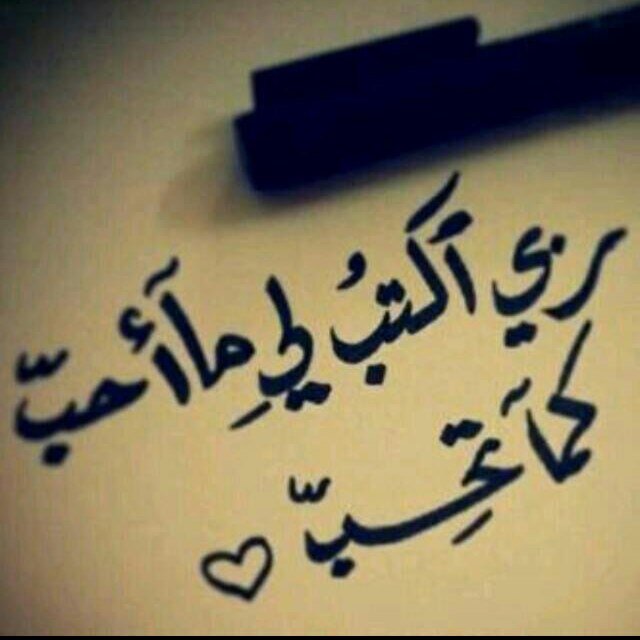 ربي اكتبُ لي مِاآ أحبّ
كمآ تحِبّ ♡